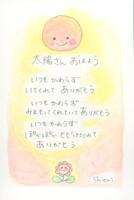 太陽さん おはよう
いつも かわらず
いてくれて ありがとう
いつも かわらず
みまもってくれていて ありがとう
いつも かわらず
ぽかぽかを とどけてくれて
ありがとう